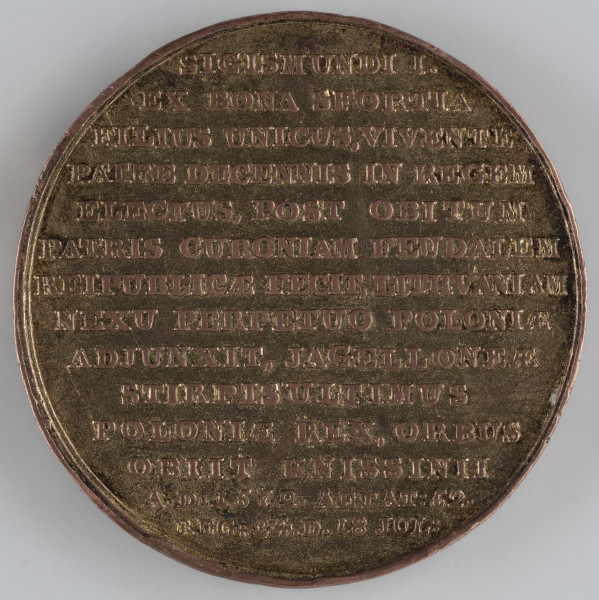 SIGISMUNDI I.
EX BONA SFORTIA
FILIUS UNICUS, VIVENTE
PATRE DECENNIS IN REGEM
ELECTUS, POST OBITUM
PATRIS CURONIAM FEUDALEM
REIPUBLICÆ FECIT LITHUANIAM
NEXU PERPETUO POLONIÆ
ADJUNXIT, JAGELLONEÆ
STIRPIS ULTIMUS
POLONIÆ REX, ORBUS
OBIIT KNISSINII
A.D. 1572. AETAT: 52.
REG: 24. D. 18 JUL: